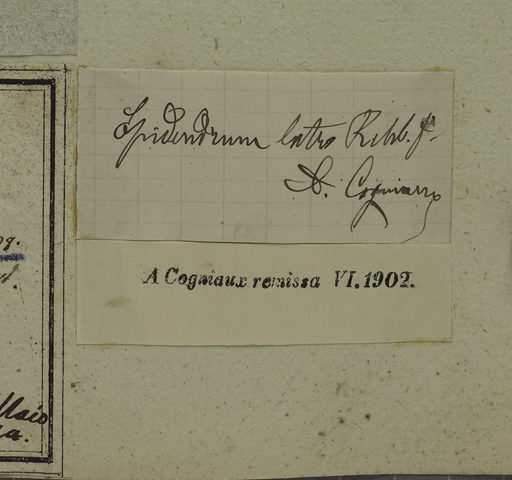 Epidendrum latro Rchb. f.
A. Cogniaux
A Cogniaux remissa VI. 1902.